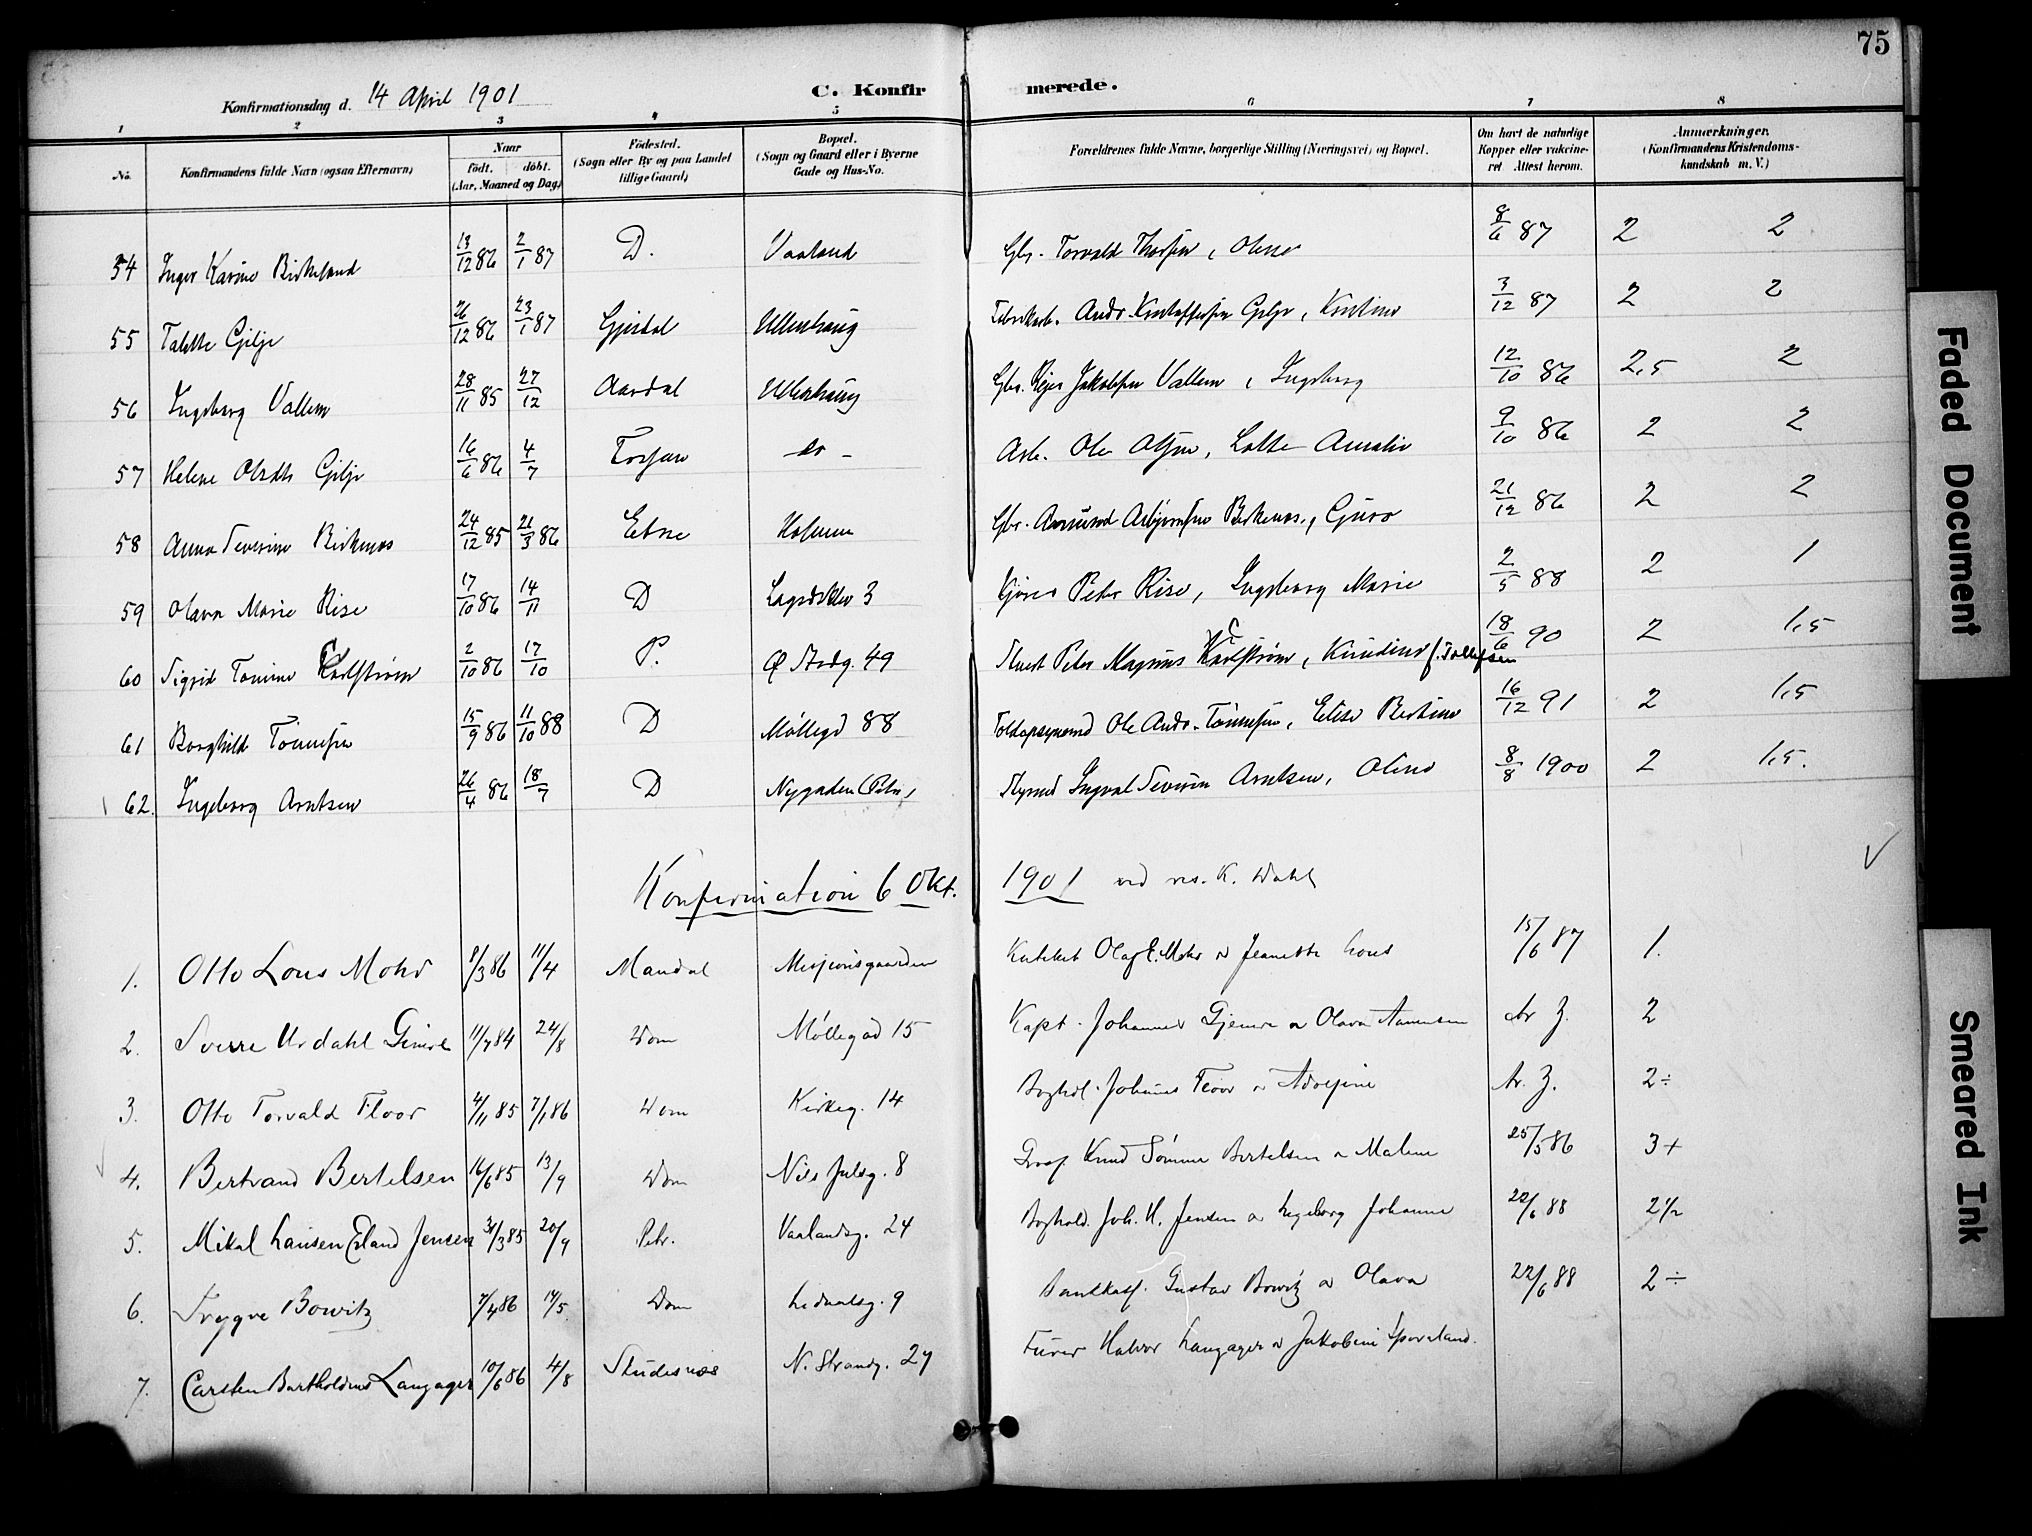 75
Konfirmationsdag d. 14 April 1901
C. Konfirmerede.
1 2 3 4 5 6 7 8
No.
Konfirmandens fulde Navn (ogsaa Efternavn)
Naar
födt. döbt.
(Aar, Maaned og Dag)
Födested.
(Sogn eller By og paa Landet tillige Gaard)
Bopæl.
(Sogn og Gaard eller i Byerne Gade og Hus-No.
Forældrenes fulde Navne, borgerlige Stilling (Næringsvei) og Bopæl.
Om havt de naturlige Kopper eller vakcineret Attest herom.
Anmærkninger.
(Konfirmandens Kristendomskundskab m. V.)
54 Inger Karine Birkeland 13/12 86 2/1 87 D. Vaaland Gbr. Torvald Thorsen, Olene 8/6 87 2 2
55 Talette Gilje 26/12 86 23/1 87 Gjesdal Ullenhaug Fabrikarb. Andr. Kristoffersen Gilje, Kristine 3/12 87 2 2
56 Ingeborg Vallem 28/11 85 27/12 Aardal Ullenhaug Gbr. Jakobsen Vallem, Ingeborg 12/10 86 2,5 2
57 Helene Olsdtr Gilje 16/6 86 4/7 Forsan do - Arb. Ole Olsen, Lotte Amalie 9/10 86 2 2
58 Anna Severine Birkenes 24/12 85 21/3 86 Etne Gbr. Amund Asbjørnsen Birkenes, Guro 21/12 86 2 2
59 Olava Marie Rise 17/10 86 14/11 D 3 Kjører Peter Rise, Ingeborg Marie 2/5 88 2 1
60 Sigrid Tomine Carlstrøm 2/10 86 17/10 P. Ø Strdg. 49 Peter Magnus Carlstrøm, Knudine f. Tollefsen 18/6 90 2 1,5
61 Borghild Tönnesen 15/9 86 11/10 88 D Møllegd 88 Toldopsynsmd Ole Andr. Tönnesen, Elise Bertine 16/12 91 2 1,5
62. Ingeborg Arntsen 26/4 86 18/7 D Nygaden (Petri) Styrmd Ingval Severin Arntsen, Oline 8/8 1900 2 1,5.
Konfirmation 6 Okt. 1901 ved res. K. Wahl
1. Otto Lous Mohr 9/3 86 11/4 Mandal Misjonsgaarden Olaf E. Mohr o Jeanette Lous 15/6 87 1.
2. Sverre Urdahl Gimre 11/7 84 24/8 Dom Møllegad 15 Kapt. Johannes Gjemre o Olava Aanensen Av Z. 2
3. Otto Torvald Floor 4/11 85 7/1 86 Dom Kirkeg. 14 Boghdl. Johannes Floor o Adolfine Av. Z. 2÷
4. Bertrand Bertelsen 16/6 85 13/9 Dom Nils Julsg. 8 Gros. Knud Sömme Bertelsen o Malene 25/5 86 3+
5. Mikal Hansen Eland Jensen 31/3 85 20/9 Petr. Vaalandsg. 24 Boghold. Joh. H. Jensen o Ingeborg Johanne 22/6 88 2 1/2
6. Trygve Bowitz 7/4 86 14/5 Dom Ledaalsg. 9 Bankkass. Gustav Bowitz o Olava 22/6 88 2÷
7. Carsten Bartholdus Langager 10/6 86 4/8 Skudesnæs N. Strandg. 27 Furer Halvor Langager o Jakobine Sporaland.
Faded Document
Smeared Ink